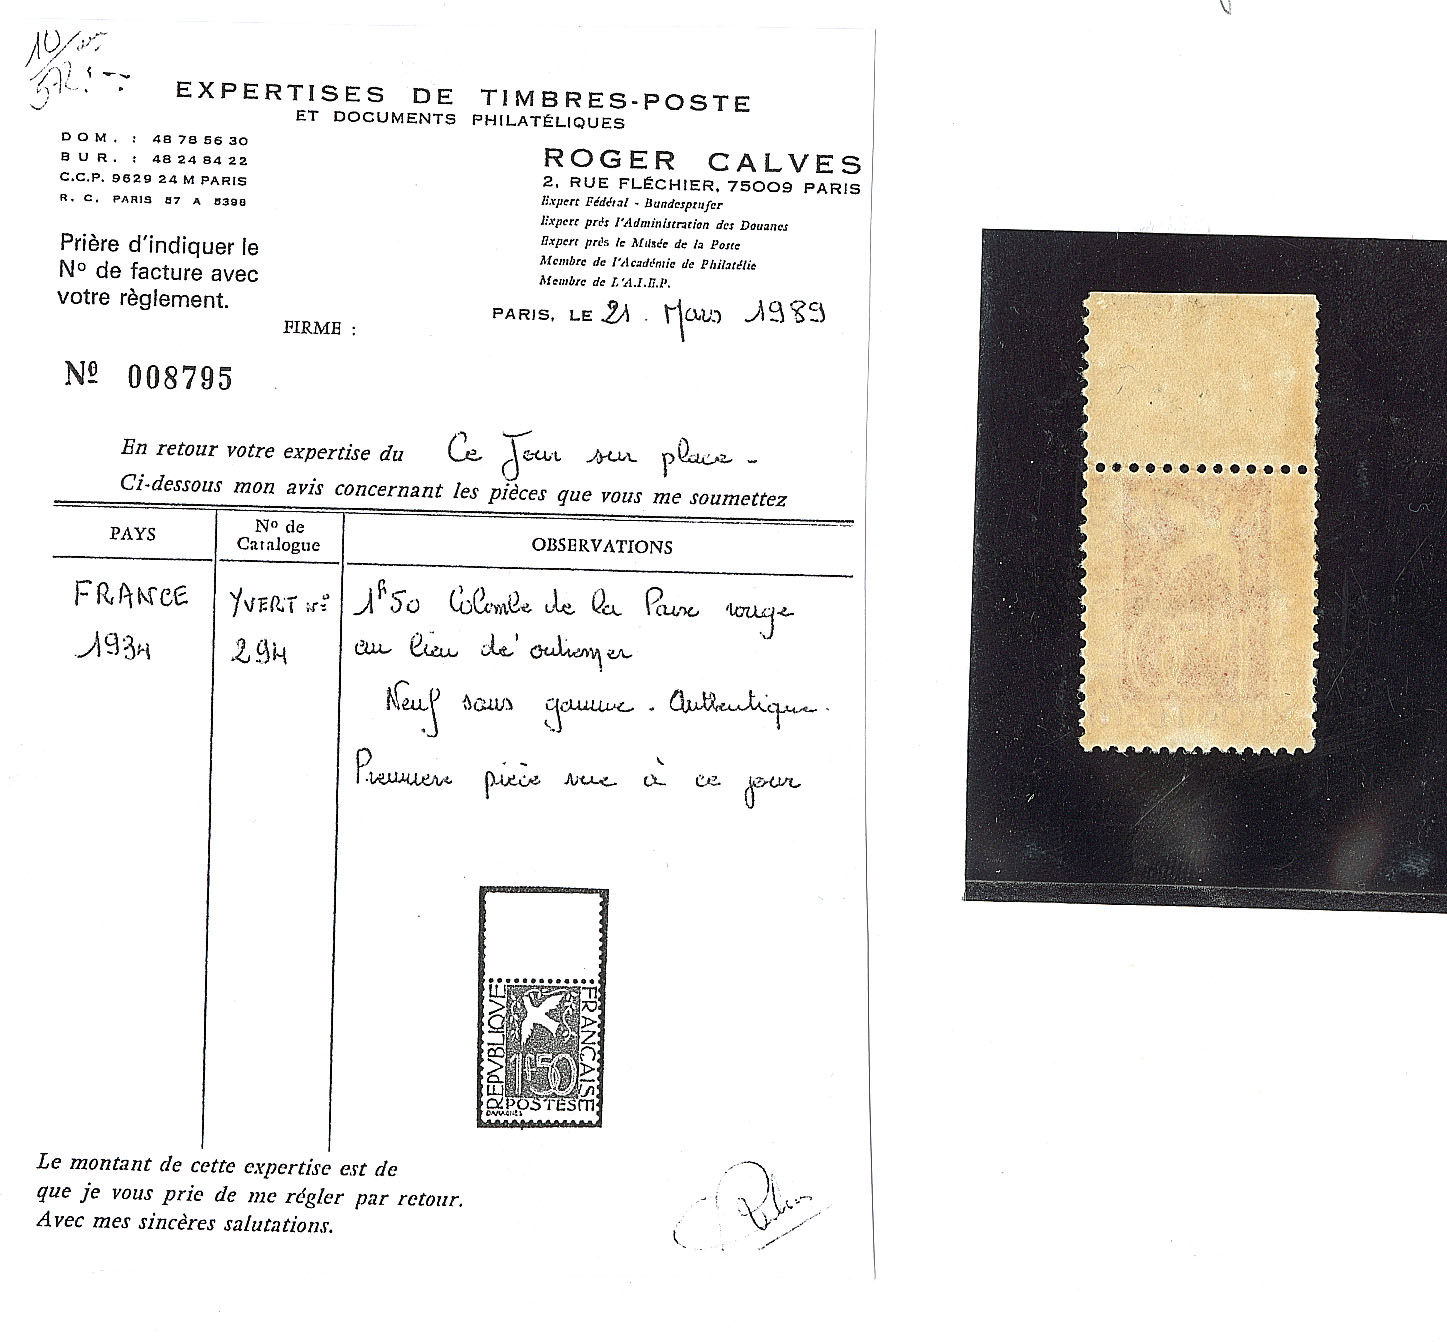 10/
572.--
EXPERTISES DE TIMBRES-POSTE
ET DOCUMENTS PHILATÉLIQUES
DOM. : 48 78 56 30
BUR. : 48 24 84 22
C.C.P. 9629 24 M PARIS
R. C. PARIS 57 A 5398
ROGER CALVES
2, RUE FLÉCHIER, 75009 PARIS
Expert Fédéral - Bundesprüfer
Expert près l'Administration des Douanes
Expert près le Musée de la Poste
Membre de l'Académie de Philatélie
Membre de L'A.I.E.P.
Prière d'indiquer le
Nº de facture avec
votre règlement.
PARIS, LE 21. Mars 1989
FIRME :
Nº 008795
En retour votre expertise du Ce Jour sur place -
Ci-dessous mon avis concernant les pièces que vous me soumettez
PAYS
Nº de
Catalogue
OBSERVATIONS
FRANCE
1934
YVERT Nº
294
1f50 Colombe de la Paix rouge
au lieu de outremer
Neuf sans gomme. Authentique.
Première pièce vue à ce jour
REPVBLIQVE
FRANCAISE
1F50
POSTES
DARAGNÈS
Le montant de cette expertise est de
que je vous prie de me régler par retour.
Avec mes sincères salutations.